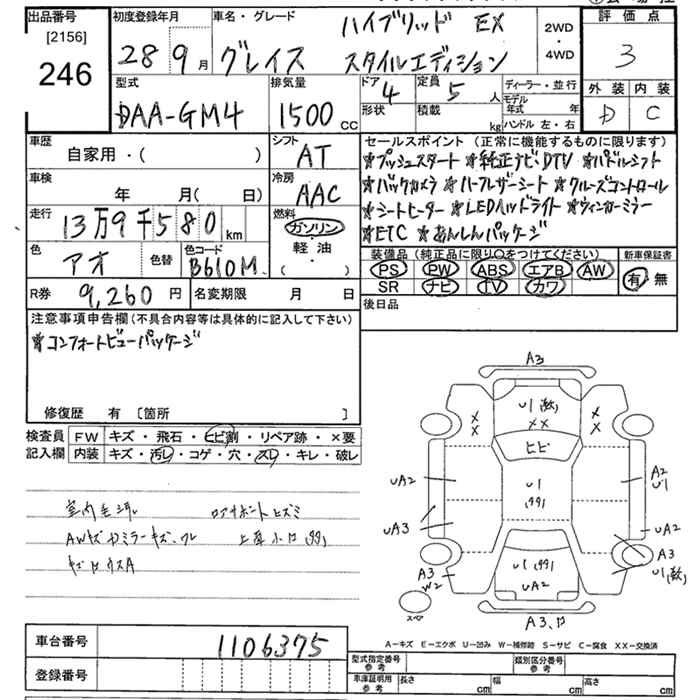 出品番号
[2156]
246
初度登録年月
28 9月
車名・グレード
ハイブリッド EX
グレイス スタイルエディション
2WD
・
4WD
評価点
3
外装 内装
D C
型式
DAA-GM4
排気量
1500 cc
ドア 4
形状
定員 5 人
積載 kg
ディーラー・並行
モデル年式 年
ハンドル 左・右
車歴
自家用・( )
シフト
AT
車検
年 月( 日)
冷房
AAC
走行
13万9千580 km
燃料
ガソリン
・
軽油
・
( )
色
アオ
色替
色コード
B610M
R券
9,260 円
名変期限 月 日
セールスポイント (正常に機能するものに限ります)
★プッシュスタート ★純正ナビDTV ★パドルシフト
★バックカメラ ★ハーフレザーシート ★クルーズコントロール
★シートヒーター ★LEDヘッドライト ★ウィンカーミラー
★ETC ★あんしんパッケージ
装備品 (純正品に限り○をつけてください)
PS PW ABS エアB AW
SR ナビ TV カワ
新車保証書
有・無
後日品
注意事項申告欄(不具合内容等は具体的に記入して下さい)
★コンフォートビューパッケージ
修復歴 有 [箇所 ]
検査員
記入欄
FW キズ・飛石・ヒビ割・リペア跡・×要
内装 キズ・汚レ・コゲ・穴・スレ・キレ・破レ
ロアサポートヒズミ
AWキズ
A3
U1
XX
XX
XX
ヒビ
UA2
U1
A2
U1
UA3
UA2
A3
U1
A3
W2
U1
UA2
スペア
A3
A-キズ E-エクボ U-凹み W-補修跡 S-サビ C-腐食 XX-交換済
車台番号
1106375
登録番号
型式指定番号
参考
類別区分番号
参考
車庫証明用
参考
長さ cm
幅 cm
高さ cm